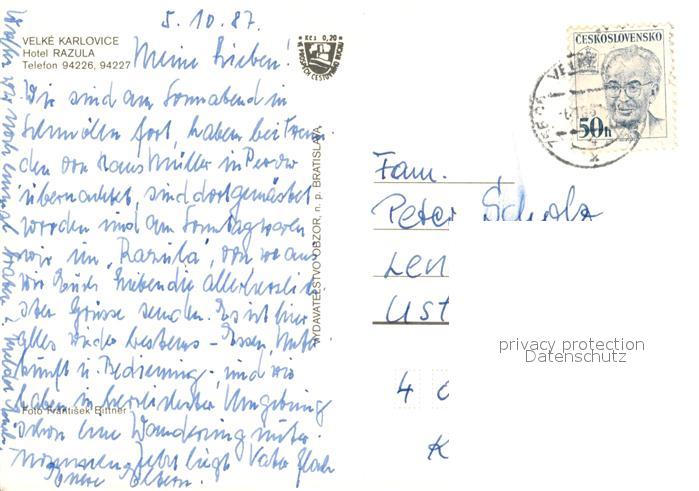 5. 10. 87.
VELKÉ KARLOVICE
Hotel RAZULA
Telefon 94226, 94227
Kčs 0,20
Meine Lieben!
Wir sind am Sonnabend in
Schmölln fort, haben bei Freun-
den von Hans Müller in
übernachtet, sind dort gemästet
worden und am Sonntag waren
wir im "Razula", von wo aus
wir Euch Lieben die allerherzlich-
sten Grüsse senden. Es ist hier
alles wieder bestens - Essen, Unter-
kunft u. Bedienung, und wir
haben in herrlichster Umgebung
schon eine Wanderung unter-
nommen. Jetzt liegt Vater flach
Eltern.
wir noch einmal
Foto František Bittner
VYDAVATEĽSTVO OBZOR, n. p. BRATISLAVA
ČESKOSLOVENSKO
50h
Fam.
Peter Scholz
Len
Ust
4 0
K
privacy protection
Datenschutz